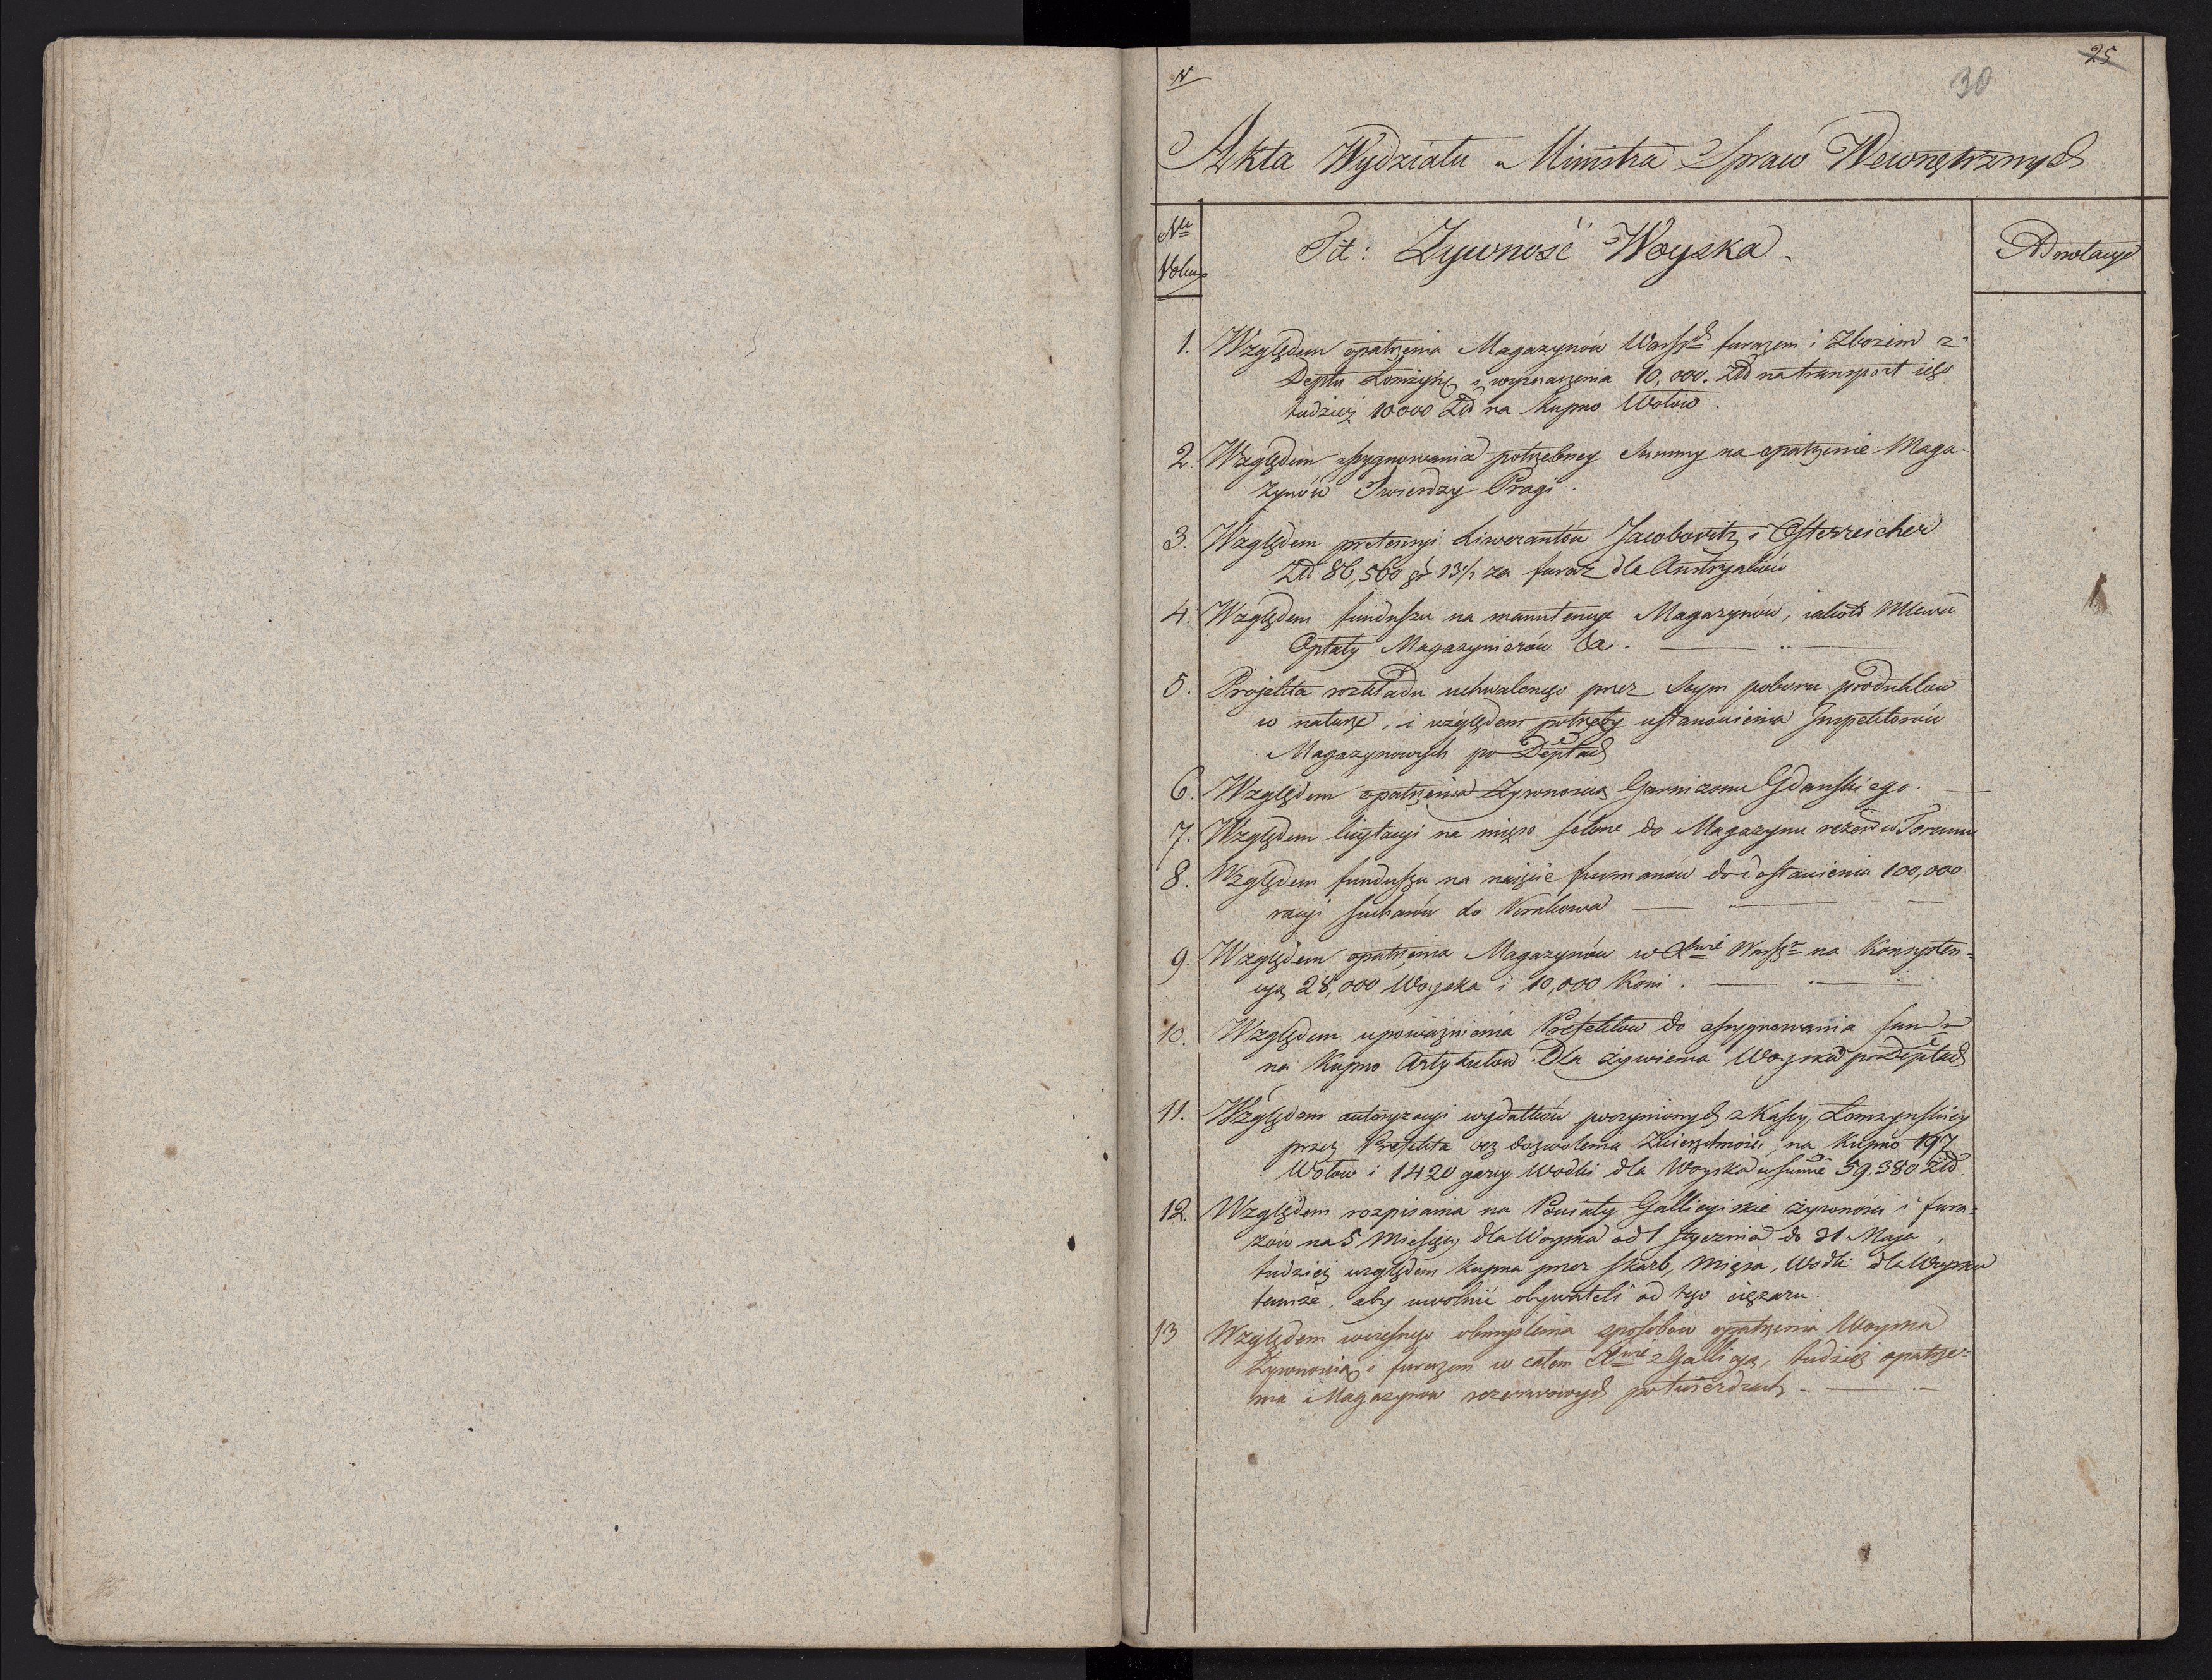 N
25
30
Akta Wydziału Ministra Spraw Wewnętrznych
Nu
Volum
Tit: Zywność Woyska.
Adnotacye
1. Względem opatrzenia Magazynów Warssch furażem i Zbożem z
Deptu Łomżyńs i wyznaczenia 10,000. Złd na transport iego
tudzież 10000 Złd na kupno Wołów.
2. Względem assygnowania potrzebney Summy na opatrzenie Maga-
zynów Twierdzy Pragi.
3. Względem pretensyi Liwerantów Jacobovitz i Österreicher
Złd 86,560 gr 13 1/2 za furaż dla Austryaków
4. Względem funduszu na manutencye Magazynów, iakoto Mlewa
Opłaty Magazynierów &a.
5. Projekta rozkładu uchwalonego przez Seym poboru produktow
w naturze, i względem potrzeby ustanowienia Inspektorów
Magazynowych po Deptach
6. Względem opatrzenia Zywnoscią Garnizonu Gdanskiego.
7. Względem licytacyi na mięso solone do Magazynu rezerw w Toruniu
8. Względem funduszu na naięcie furmanów do dostawienia 100,000
racyi sucharów do Krakowa
9. Względem opatrzenia Magazynów w Xtwie Warssm na Konsysten-
cyą 28,000 Woyska i 10,000 Koni.
10. Względem upoważnienia Prefektow do assygnowania
na Kupno Artykułow Dla żywienia Woyska po Deptach
11. Względem autoryzacyi wydatków poczynionych z Kassy Łomzynskiey
przez Prefekta bez dozwolenia Zwierzchności, na kupno 197
Wołow i 1420 garcy Wodki dla Woyska w summie 59.380 Złd
12. Względem rozpisania na Powiaty Gallicyiskie żywności i fura-
żów na 5 Miesięcy dla Woyska od 1 Stycznia do 31 Maja,
tudzież względem kupna przez skarb, Mięsa, Wodki dla Woyska
tamże, aby uwolnić obywateli od tego ciężaru.
13 Względem wczesnego obmyslenia sposobow opatrzenia Woyska
Zywnoscią i furażem w całem Xtwie z Gallicyą, tudzież opatrze-
nia Magazynow rezerwowych po twierdzach